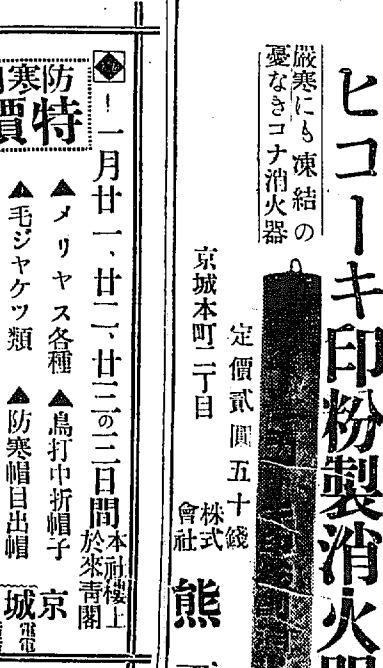 ヒコーキ印粉製消火器
嚴寒にも凍結の
憂なきコナ消火器
定價貳圓五十錢
京城本町二丁目
株式
會社
熊
一月廿一、廿二、廿三の三日間
本社樓上
於來靑閣
防寒
特價
▲メリヤス各種
▲鳥打中折帽子
▲毛ジャケツ類
▲防寒帽目出帽
京城
電